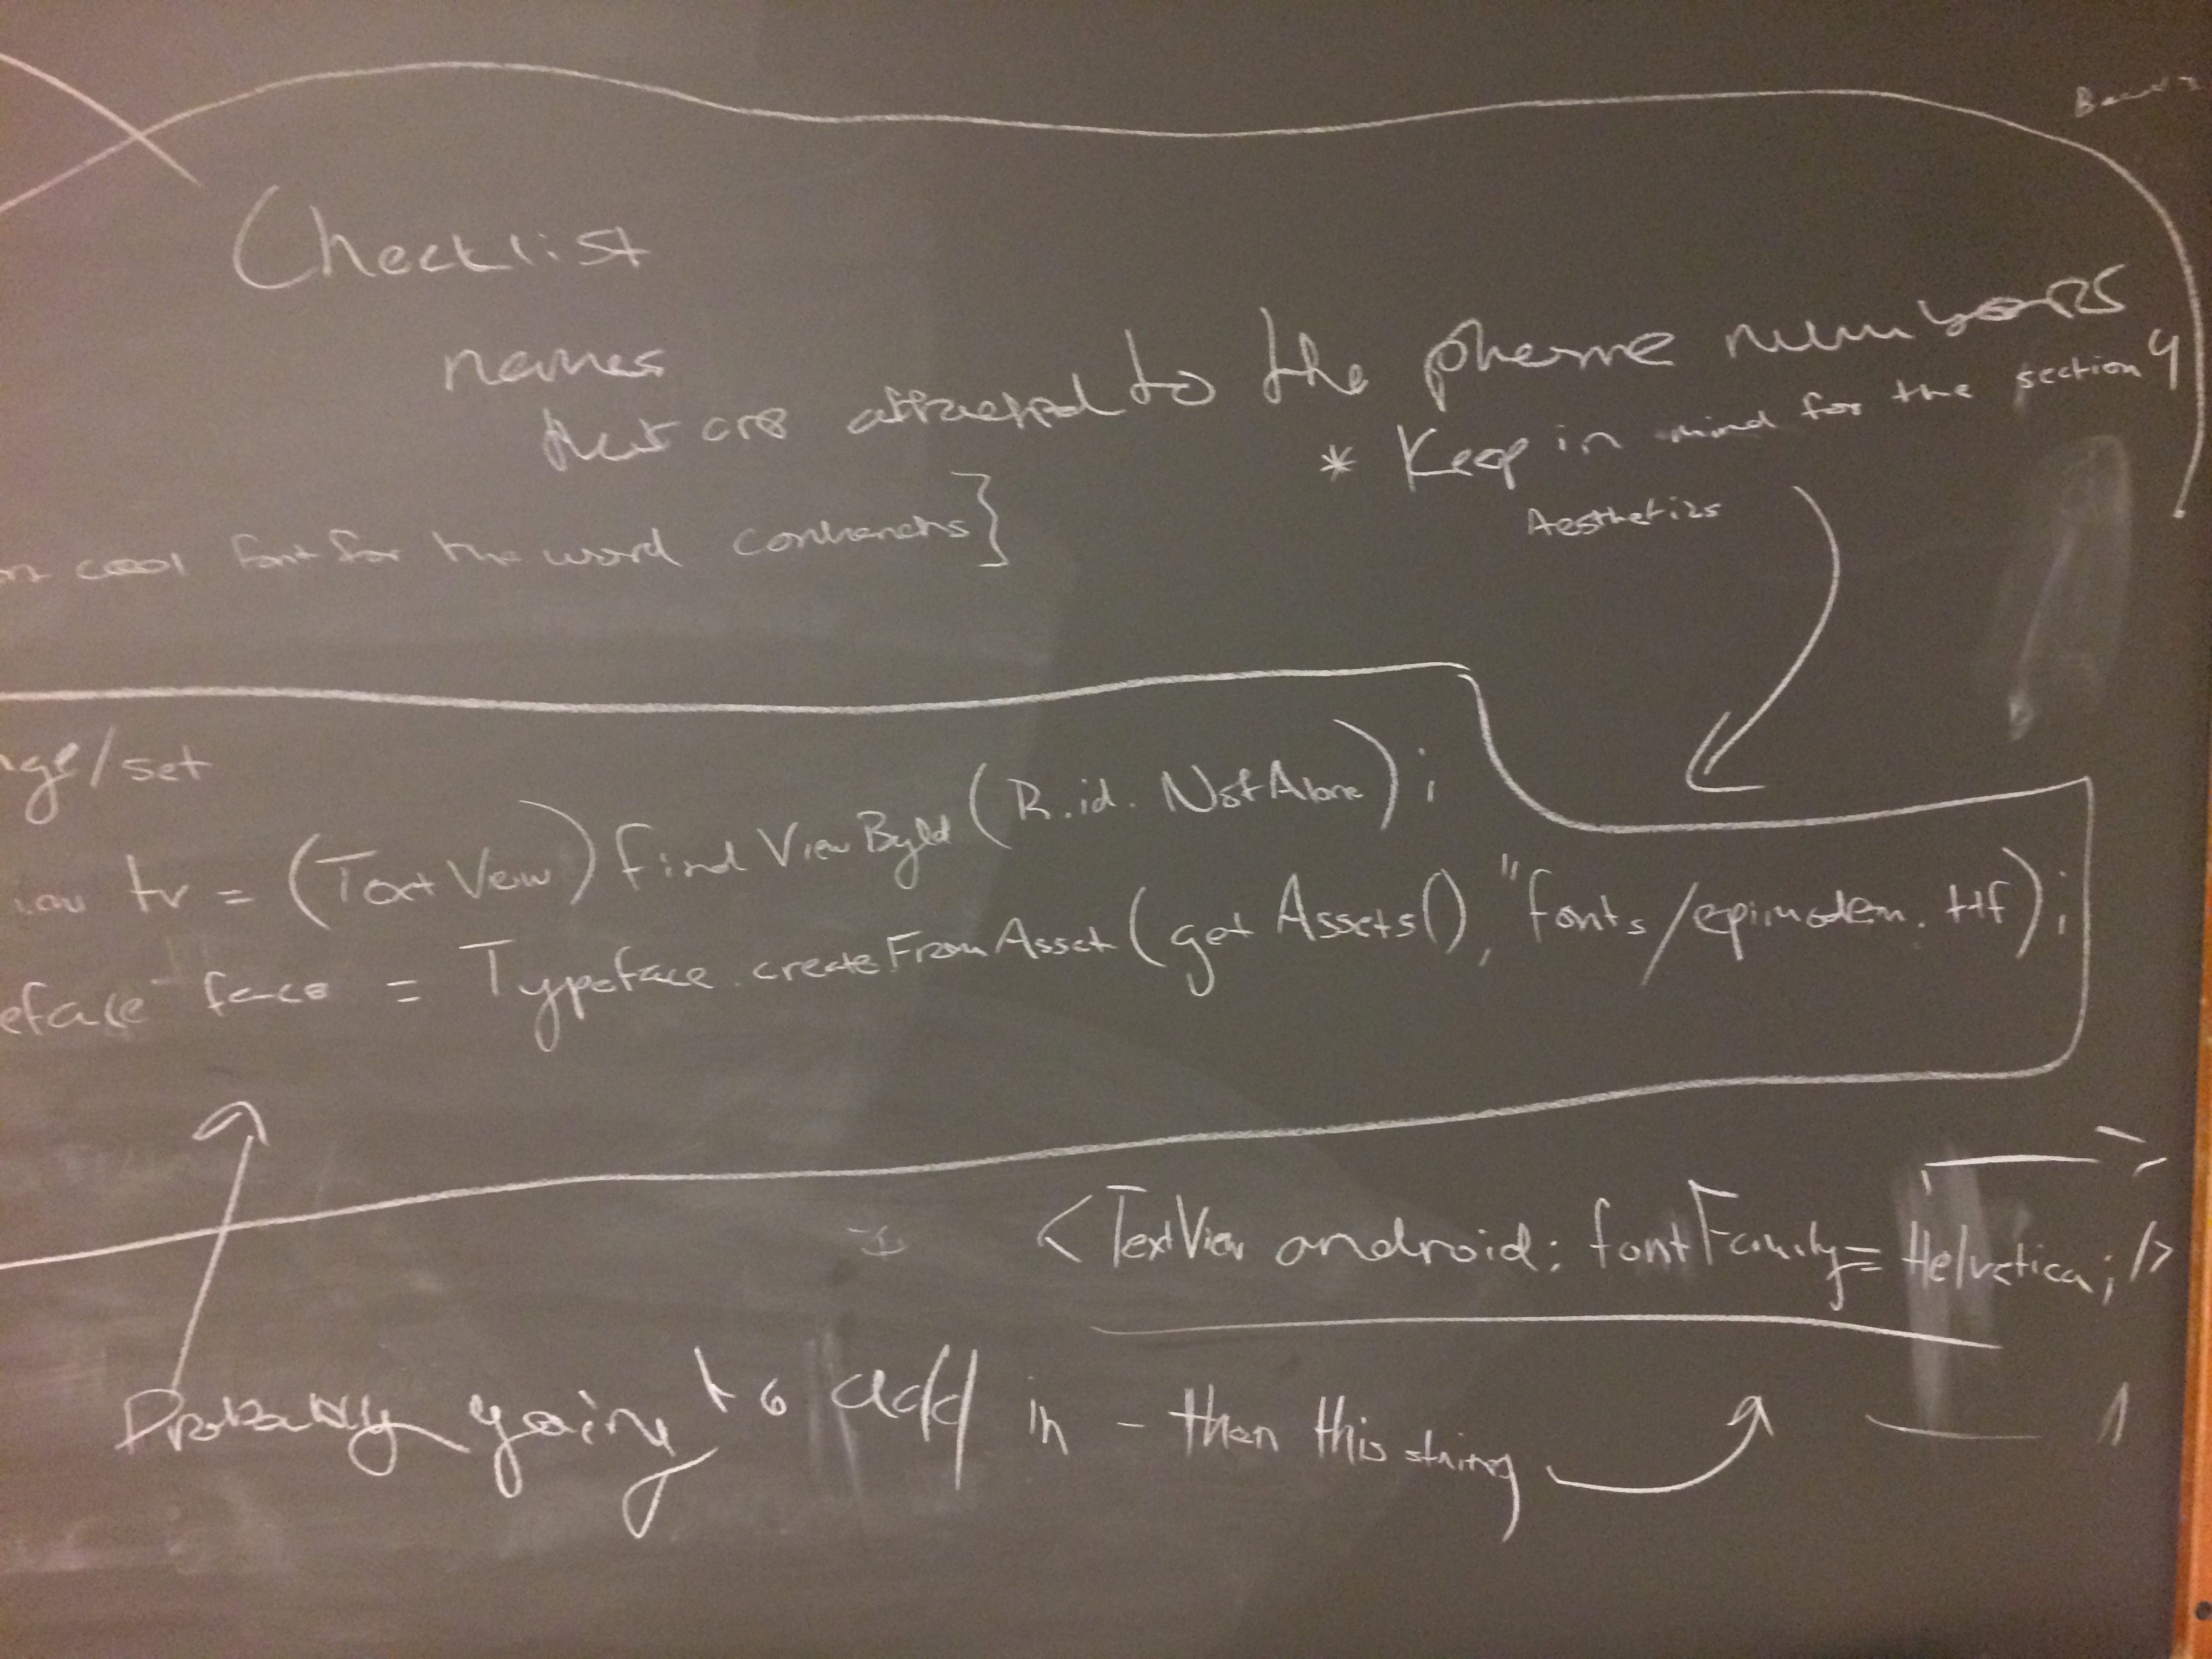 Checklist
names
that are attached to the phone numbers
* Keep in mind for the section 4
Aesthetics
cool font for the word
nge/set
tv = (TextView) findViewById (R.id.NotAlone);
eface face = Typeface.createFromAsset(getAssets(), "fonts/epimodem.ttf);
<TextView android: fontFamily= Helvetica; />
Probably going to add in - then this string